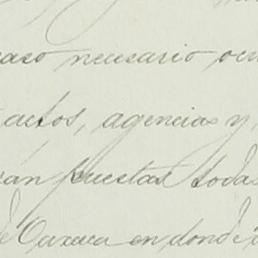 caso necesario
actos, agencias y,
án puestas todas
de Oaxaca en donde